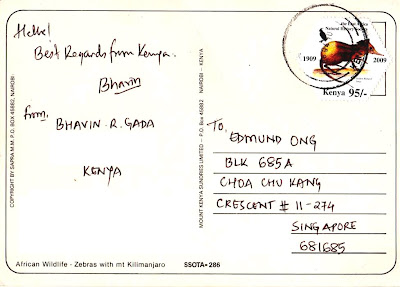 Hello!
Best Regards from Kenya.
Bhavin
from,
BHAVIN.R.GADA
KENYA
COPYRIGHT BY SAPRA M.M. P.O. BOX 45862, NAIROBI
MOUNT KENYA SUNDRIES LIMITED - P.O. Box 45862 NAIROBI - KENYA
1909 2009
Kenya 95/-
To,
EDMUND ONG
BLK 685A
CHOA CHU KANG
CRESCENT # 11-274
SINGAPORE
681685
African Wildlife - Zebras with mt Kilimanjaro SSOTA-286